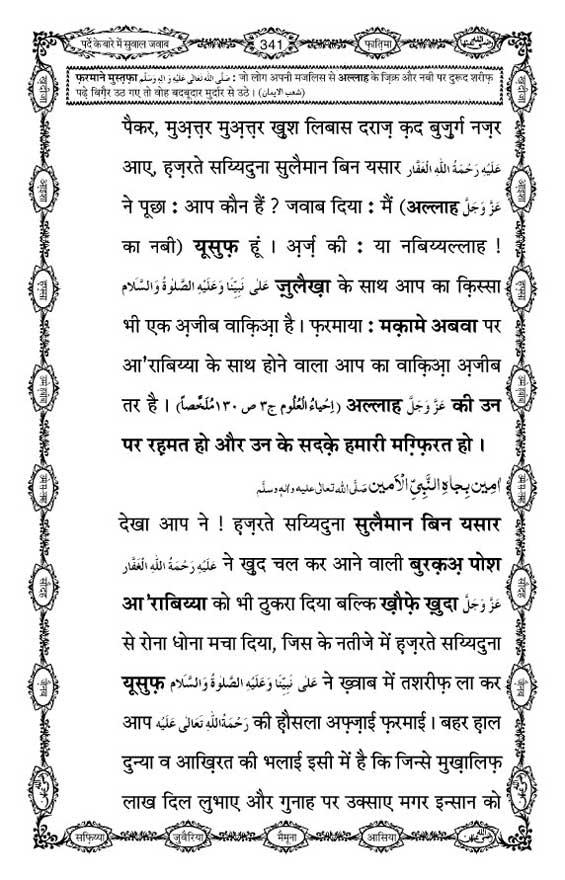 पर्दे के बारे में सुवाल जवाब 341 फ़ातिमा
फ़रमाने मुस्तफ़ा صَلَّى اللّٰهُ تَعَالٰى عَلَيْهِ وَاٰلِهٖ وَسَلَّم : जो लोग अपनी मजलिस से अल्लाह के ज़िक्र और नबी पर दुरूद शरीफ़
पढ़े बिग़ैर उठ गए तो वोह बदबूदार मुर्दार से उठे । (شعب الايمان)
पैकर, मुअ़त़्त़र मुअ़त़्त़र ख़ुश लिबास दराज़ क़द बुज़ुर्ग नज़र
आए, ह़ज़रते सय्यिदुना सुलैमान बिन यसार عَلَيْهِ رَحْمَةُ اللّٰهِ الْغَفَّار
ने पूछा : आप कौन हैं ? जवाब दिया : मैं (अल्लाह عَزَّ وَجَلَّ
का नबी) यूसुफ़ हूं । अ़र्ज़ की : या नबिय्यल्लाह !
عَلٰى نَبِيِّنَا وَعَلَيْهِ الصَّلٰوةُ وَالسَّلَام ज़ुलैख़ा के साथ आप का क़िस्सा
भी एक अ़जीब वाक़िआ़ है । फ़रमाया : मक़ामे अबवा पर
आ'राबिय्या के साथ होने वाला आप का वाक़िआ़ अ़जीब
तर है । (اِحياءُ الْعُلُوم ج٣ ص ١٣٠ مُلَخَّصاً) अल्लाह عَزَّ وَجَلَّ की उन
पर रह़मत हो और उन के सदक़े हमारी मग़्फ़िरत हो ।
اٰمِين بِجَاهِ النَّبِيِّ الْاَمين صَلَّى اللّٰه تعالٰى عليه واٰله وسلَّم
देखा आप ने ! ह़ज़रते सय्यिदुना सुलैमान बिन यसार
عَلَيْهِ رَحْمَةُ اللّٰهِ الْغَفَّار ने ख़ुद चल कर आने वाली बुरक़अ़ पोश
आ'राबिय्या को भी ठुकरा दिया बल्कि ख़ौफ़े ख़ुदा عَزَّ وَجَلَّ
से रोना धोना मचा दिया, जिस के नतीजे में ह़ज़रते सय्यिदुना
यूसुफ़ عَلٰى نَبِيِّنَا وَعَلَيْهِ الصَّلٰوةُ وَالسَّلَام ने ख़्वाब में तशरीफ़ ला कर
आप رَحْمَةُ اللّٰهِ تَعَالٰى عَلَيْه की ह़ौसला अफ़्ज़ाई फ़रमाई । बहर ह़ाल
दुन्या व आख़िरत की भलाई इसी में है कि जिन्से मुख़ालिफ़
लाख दिल लुभाए और गुनाह पर उक्साए मगर इन्सान को
सफ़िय्या जुवैरिया मैमूना आसिया